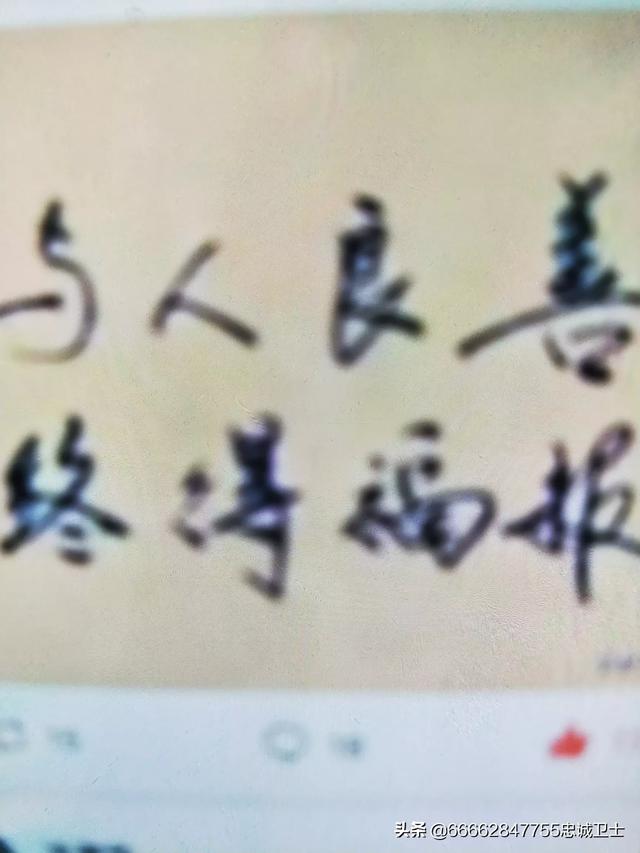 与人良善
终得福报
头条 @66662847755忠诚卫士